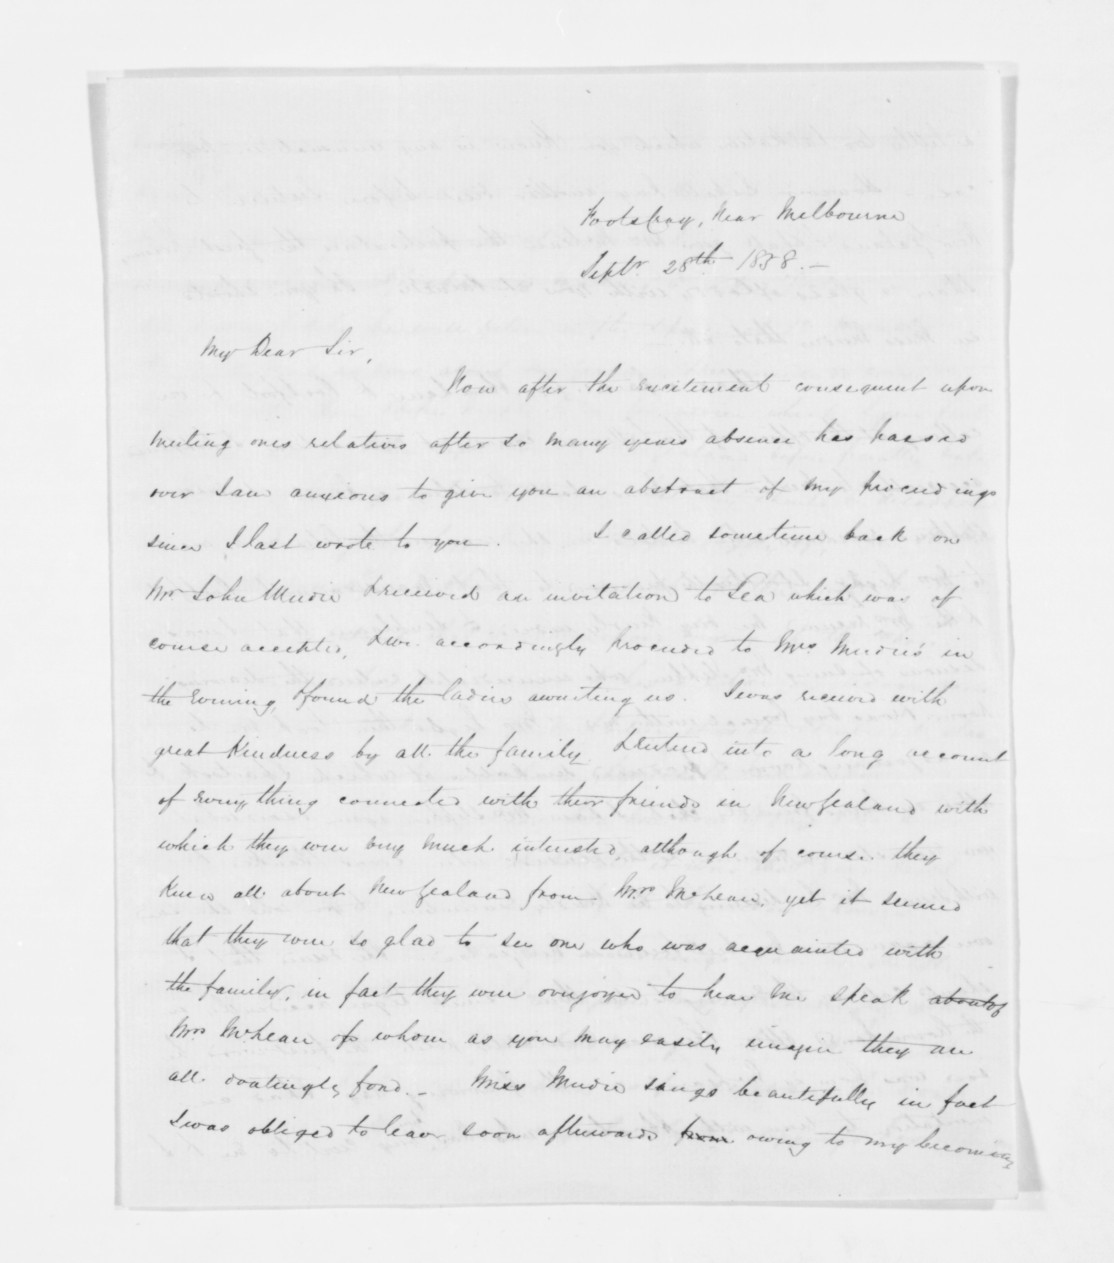 Footscray, Near Melbourne
Septr. 28th 1858. —
My Dear Sir,
Now after the excitement consequent upon
meeting ones relatives after so many years absence has passed
over I am anxious to give you an abstract of my proceedings
since I last wrote to you. I called sometime back on
Mr John Mudie & received an invitation to Tea which was of
course accepted, & we accordingly proceeded to Mrs Mudie's in
the evening, & found the ladies awaiting us. I was received with
great kindness by all the family & entered into a long account
of everything connected with their friends in New Zealand with
which they were very much interested although of course they
knew all about New Zealand from Mrs McLean, yet it seemed
that they were so glad to see one who was acquainted with
the family, in fact they were overjoyed to hear me speak about of
Mrs McLean of whom as you may easily imagin they are
all doatingly fond. — Miss Mudie sings beautifully in fact
I was obliged to leave soon afterwards from owing to my becoming